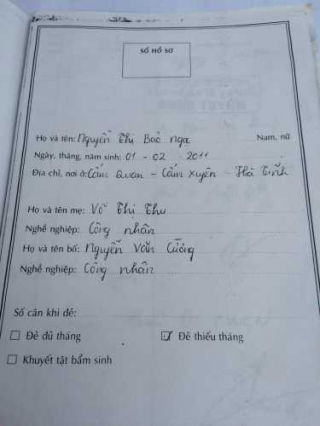 SỐ HỒ SƠ
Họ và tên: Nguyễn Thị Bảo Nga Nam, nữ
Ngày, tháng, năm sinh: 01 - 02 - 2011
Địa chỉ, nơi ở: Cẩm Quan - Cẩm Xuyên - Hà Tĩnh
Họ và tên mẹ: Võ Thị Thu
Nghề nghiệp: Công nhân
Họ và tên bố: Nguyễn Văn Cường
Nghề nghiệp: Công nhân
Số cân khi đẻ:
Đẻ đủ tháng Đẻ thiếu tháng
Khuyết tật bẩm sinh